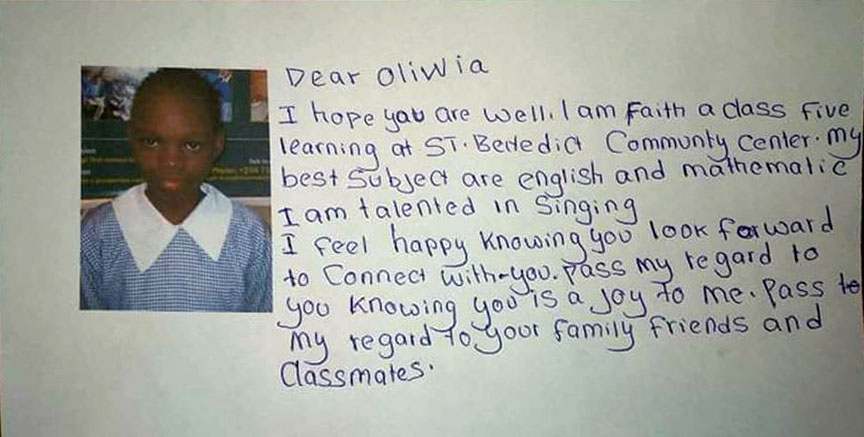 Dear Oliwia
I hope you are well. I am Faith a class five
learning at ST. Benedict Communty Center. my
best Subject are english and mathematic
I am talented in Singing
I feel happy Knowing you look forward
to Connect with-you. Pass my regard to
you Knowing you is a Joy to me. Pass to
my regard to your family friends and
Classmates.